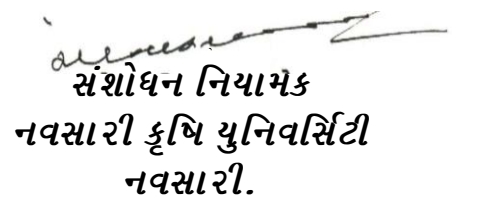 સંશોધન નિયામક
નવસારી કૃષિ યુનિવર્સિટી
નવસારી.